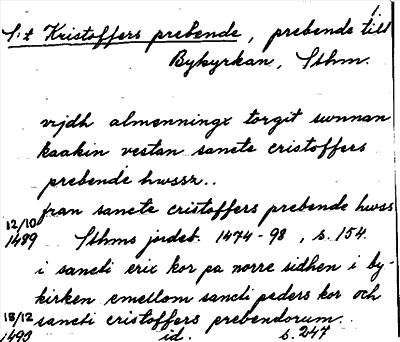 1.
S:t Kristoffers prebende, prebende till
Bykyrkan, Sthm.
vijdh almenningx torgit sunnan
kaakin vestan sancte cristoffers
prebende hwssz..
fran sancte cristoffers prebende hwss
12/10 1489 Sthms jordeb. 1474-98, s. 154.
i sancti eric kor pa norre sidhen i by-
kirken emellom sancti peders kor och
sancti cristoffers prebendorum..
18/12 1493 id. s. 247